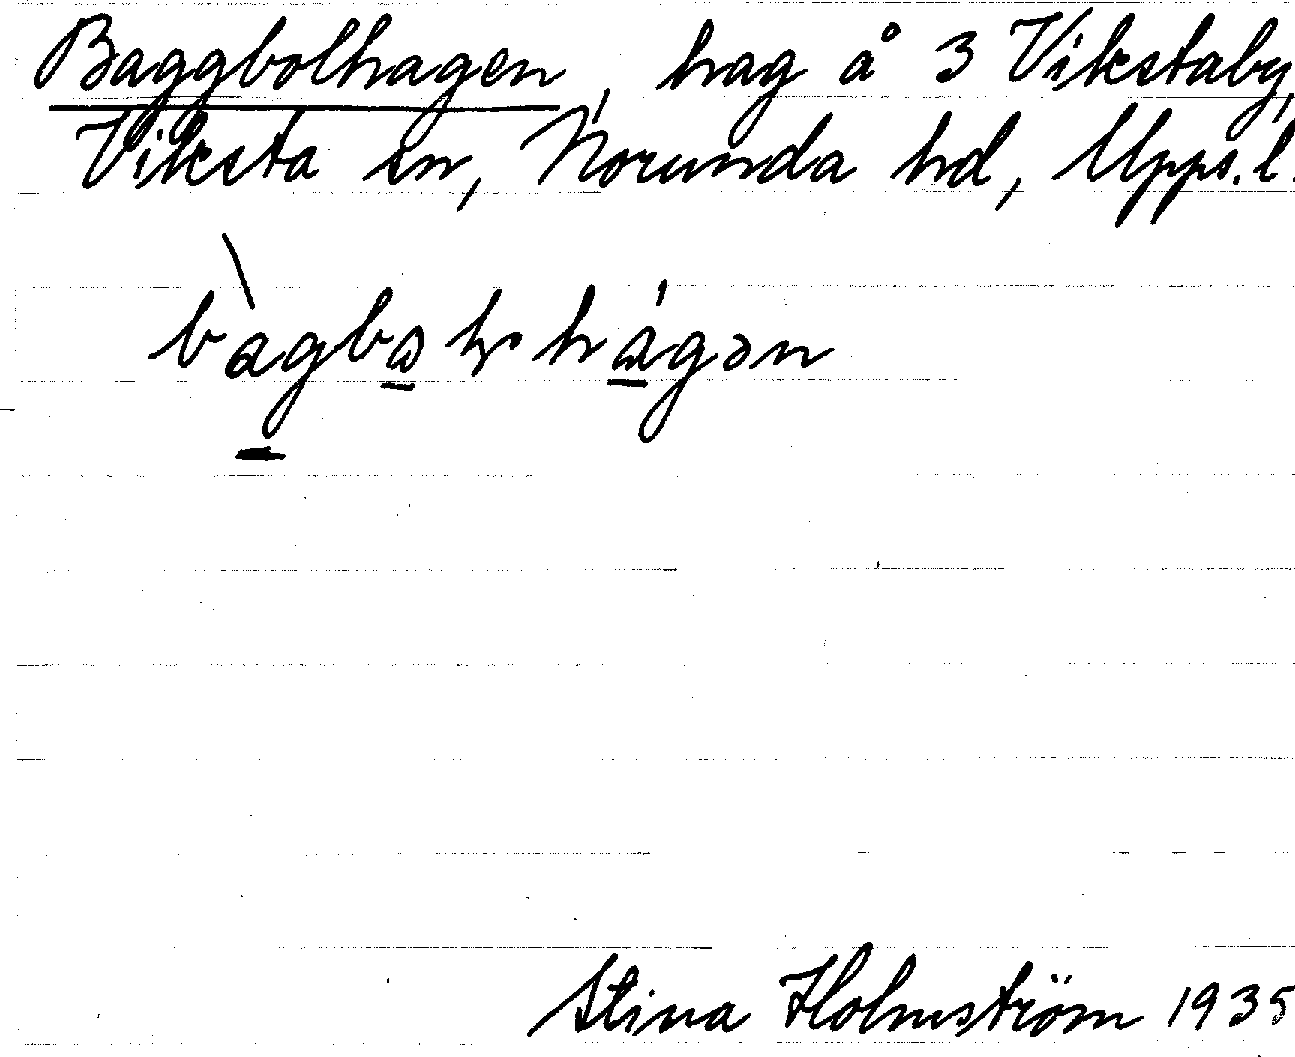 Baggbolhagen, hag å 3 Vikstaby,
Viksta sn, Norunda hd, Upps. l.
Stina Holmström 1935